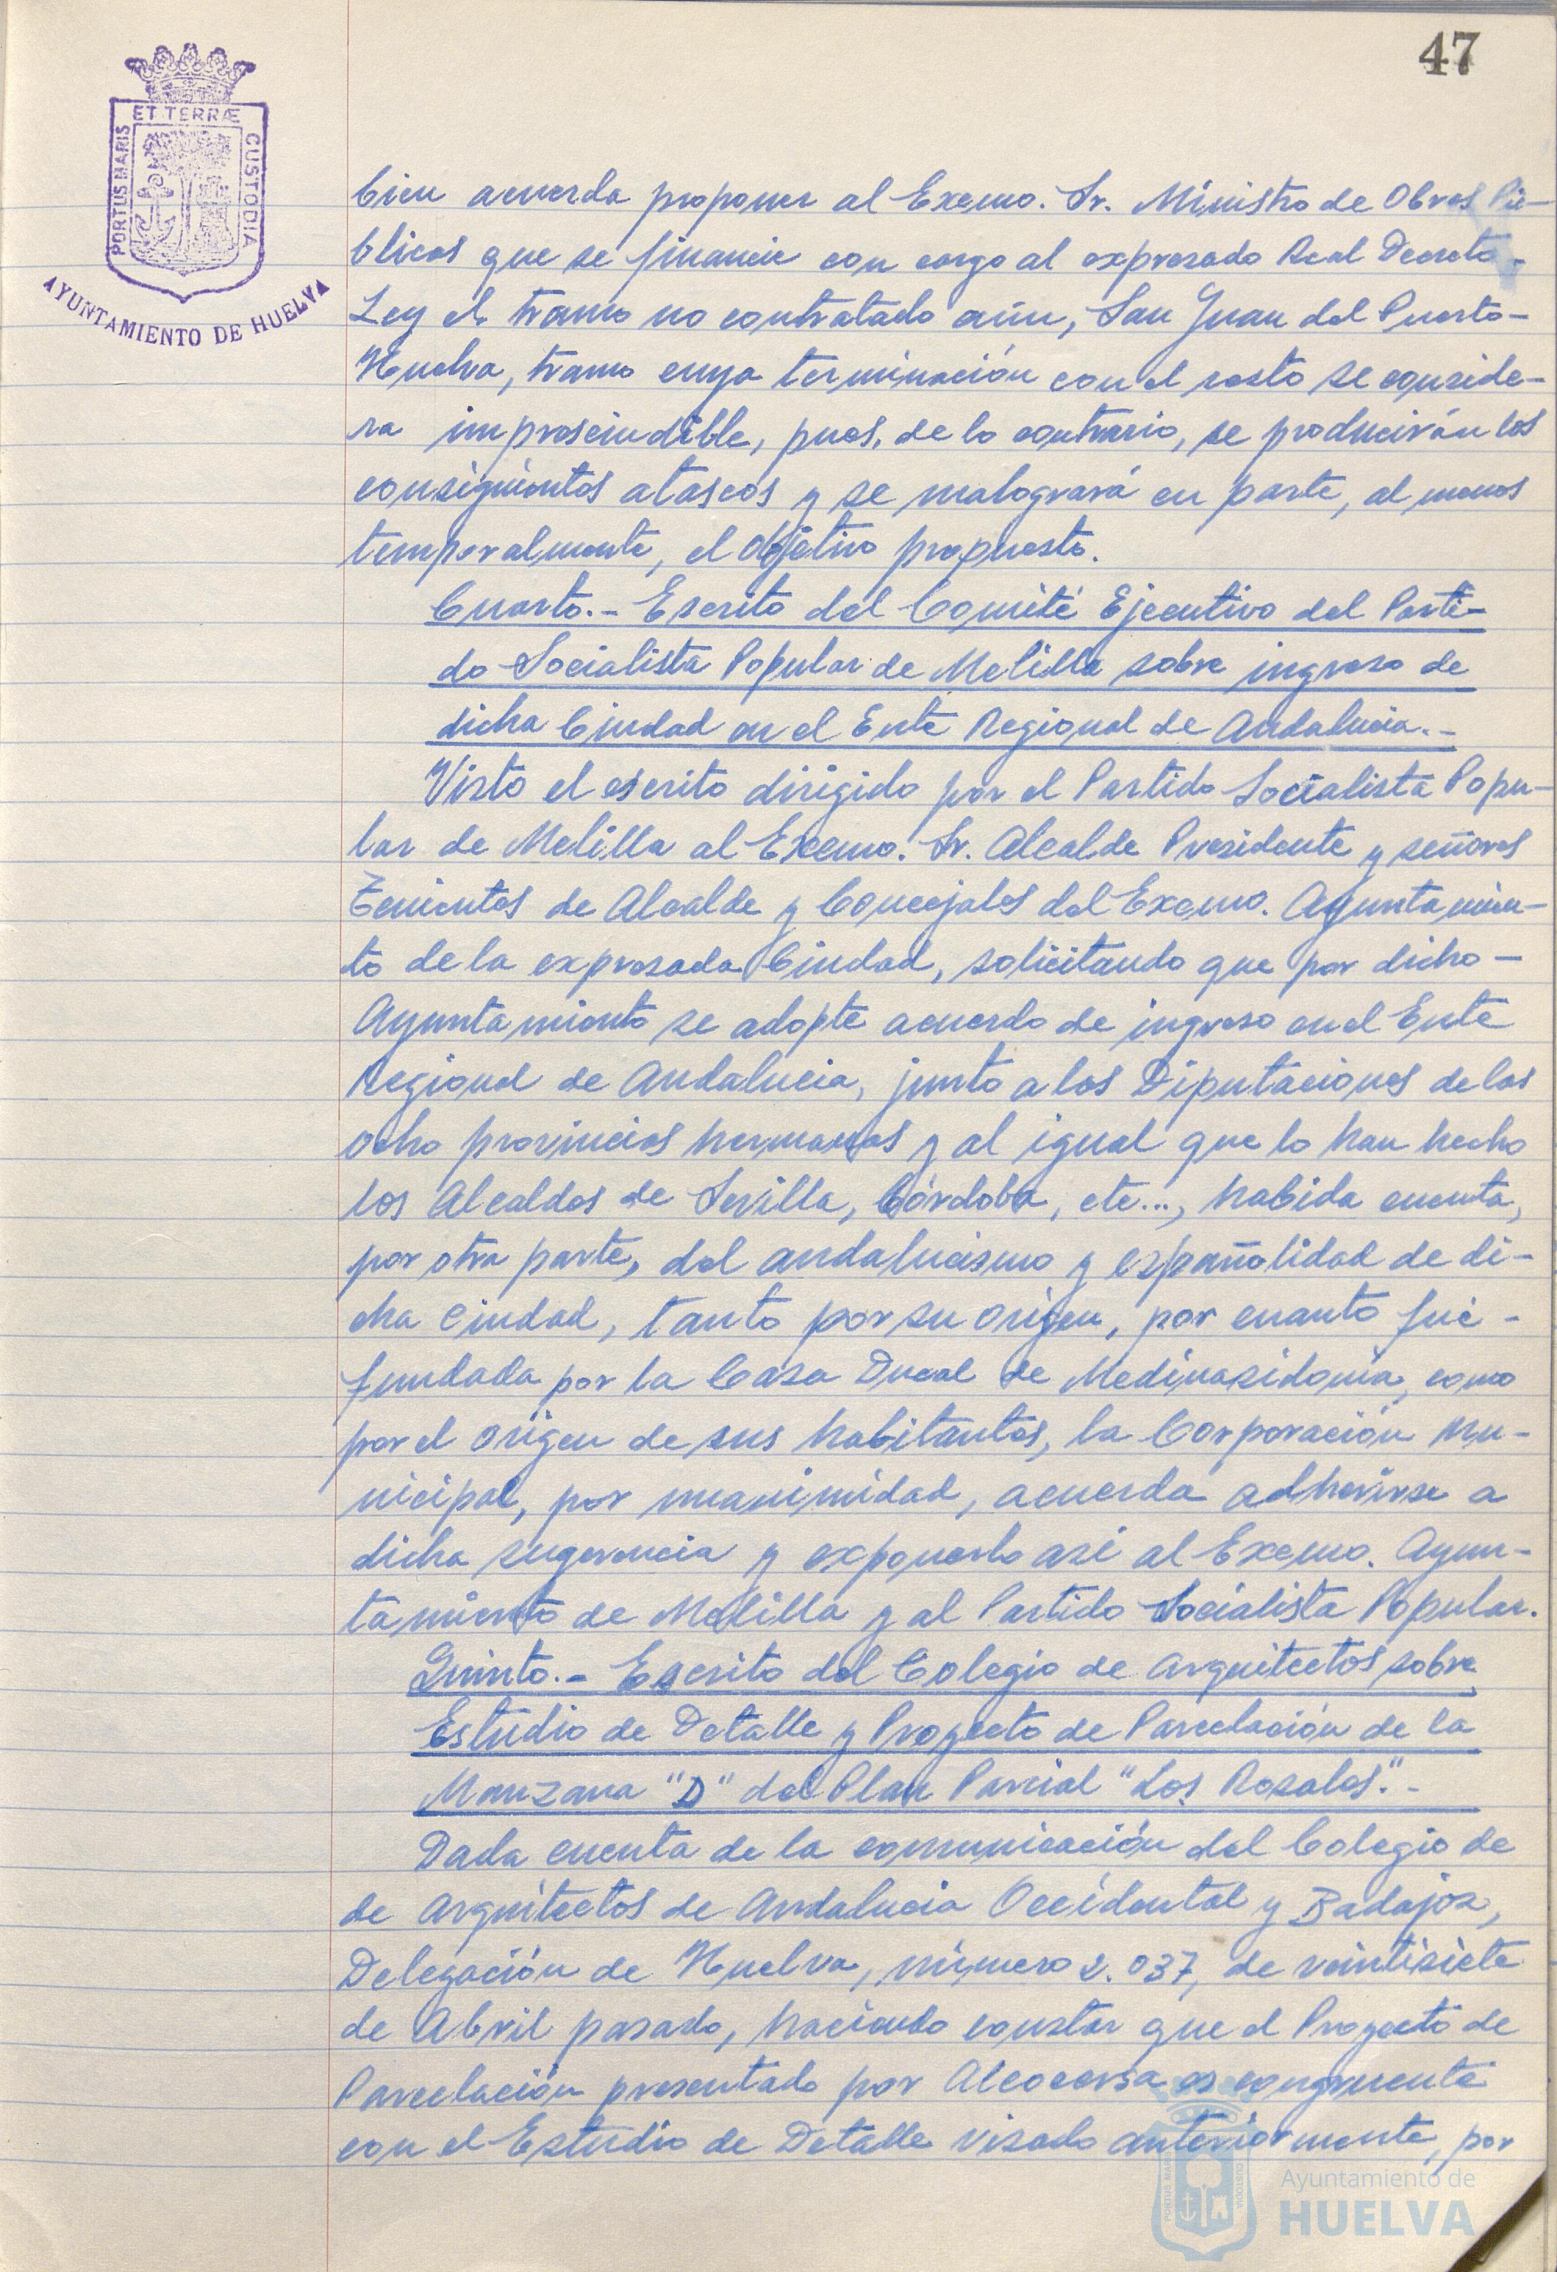 47
ET TERRÆ
PORTUS MARIS
CUSTODIA
AYUNTAMIENTO DE HUELVA
bien acuerda proponer al Excmo. Sr. Ministro de Obras Pú-
blicas que se financie con cargo al expresado Real Decreto-
Ley el tramo no contratado aún, San Juan del Puerto-
Huelva, tramo cuya terminación con el resto se conside-
ra imprescindible, pues, de lo contrario, se producirán los
consiguientes atascos y se malogrará en parte, al menos
temporalmente, el objetivo propuesto.
Cuarto.- Escrito del Comité Ejecutivo del Parti-
do Socialista Popular de Melilla sobre ingreso de
dicha Ciudad en el Ente Regional de Andalucia.-
Visto el escrito dirigido por el Partido Socialista Popu-
lar de Melilla al Excmo. Sr. Alcalde Presidente y señores
Tenientes de Alcalde y Concejales del Excmo. Ayuntamien-
to de la expresada Ciudad, solicitando que por dicho-
Ayuntamiento se adopte acuerdo de ingreso en el Ente
Regional de Andalucia, junto a las Diputaciones de las
ocho provincias hermanas y al igual que lo han hecho
los Alcaldes de Sevilla, Córdoba, etc..., habida cuenta,
por otra parte, del andalucismo y españolidad de di-
cha Ciudad, tanto por su origen, por cuanto fué-
fundada por la Casa Ducal de Medinasidonia, como
por el origen de sus habitantes, la Corporación Mu-
nicipal, por unanimidad, acuerda adherirse a
dicha sugerencia y exponerlo así al Excmo. Ayun-
tamiento de Melilla y al Partido Socialista Popular.
Quinto.- Escrito del Colegio de Arquitectos sobre
Estudio de Detalle y Proyecto de Parcelación de la
Manzana "D" del Plan Parcial "Los Rosales".-
Dada cuenta de la comunicación del Colegio de
de Arquitectos de Andalucia Occidental y Badajoz,
Delegación de Huelva, número 2.037, de veintisiete
de Abril pasado, haciendo constar que el Proyecto de
Parcelación presentado por Alcocersa es congruente
con el Estudio de Detalle visado anteriormente, por
PORTUS MARIS
CUSTODIA
Ayuntamiento de
HUELVA